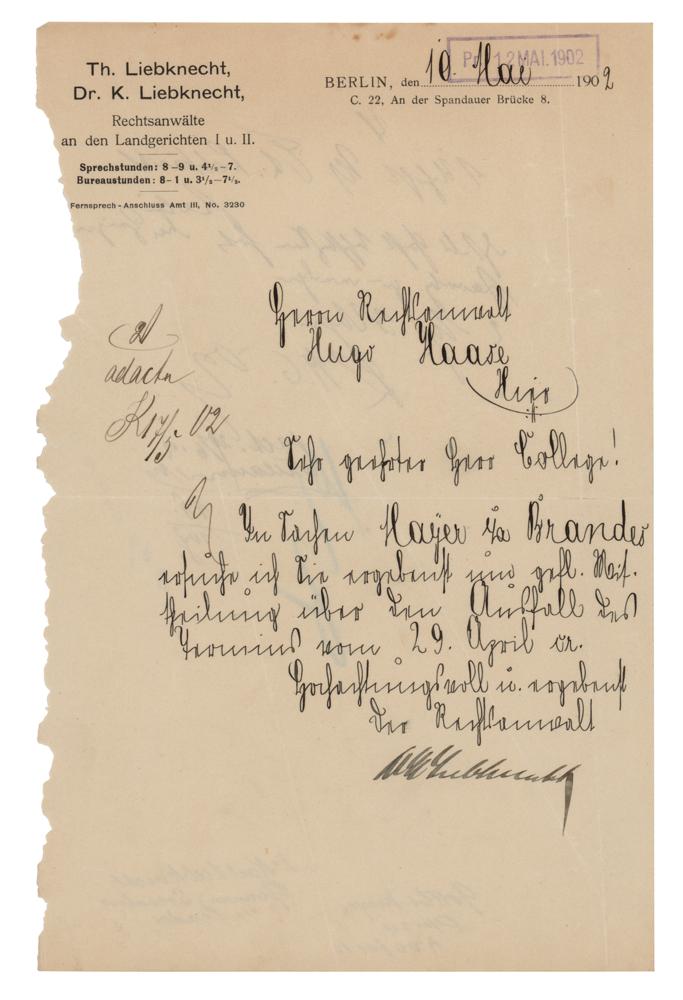 Th. Liebknecht,
Dr. K. Liebknecht,
Rechtsanwälte
an den Landgerichten I u. II.
Sprechstunden: 8–9 u. 4½–7.
Bureaustunden: 8–1 u. 3½–7½.
Fernsprech-Anschluss Amt III, No. 3230
12 MAI. 1902
BERLIN, den 10. Mai 1902
C. 22, An der Spandauer Brücke 8.
Herrn Rechtsanwalt
Hugo Haase
Hier
adacta
K 17/5 02
Sehr geehrter Herr College!
In Sachen Mayer c/a Brandes
ersuche ich Sie ergebenst um gefl. Mit-
theilung über den Ausfall des
Termins vom 29. April cr.
Hochachtungsvoll u. ergebenst
Der Rechtsanwalt
Liebknecht